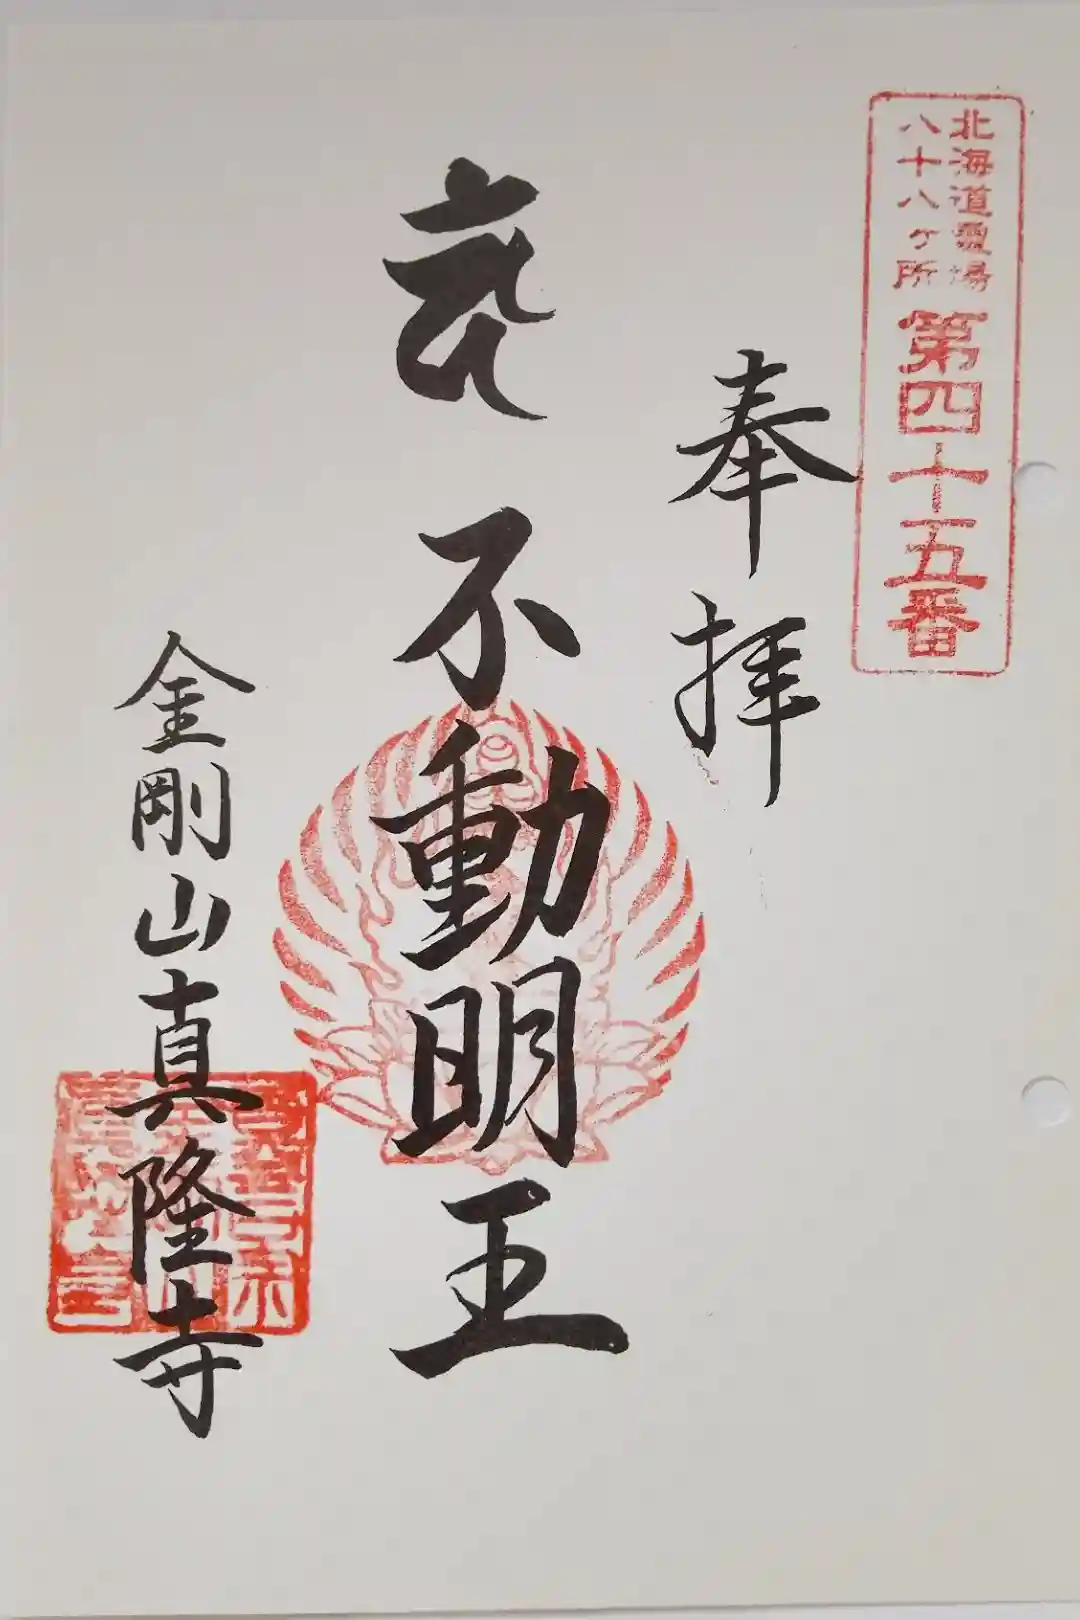 北海道霊場
八十八ヶ所
第四十五番
奉拝
不動明王
金剛山真隆寺